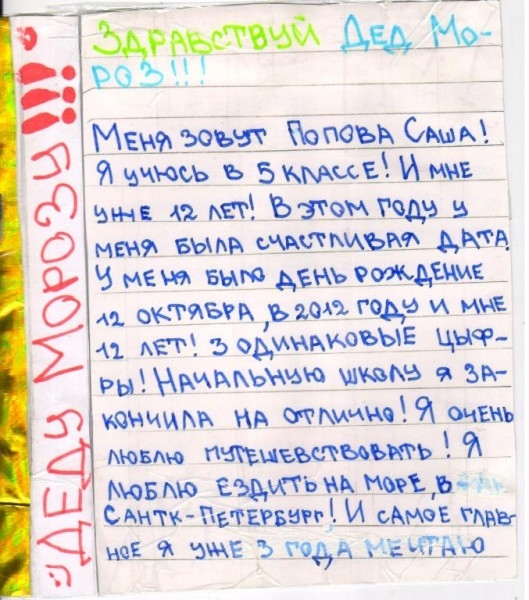 ДЕДУ МОРОЗУ!!!
ЗДРАВСТВУЙ ДЕД МО-
РОЗ!!!
МЕНЯ ЗОВУТ ПОПОВА САША!
Я УЧЮСЬ В 5 КЛАССЕ! И МНЕ
УЖЕ 12 ЛЕТ! В ЭТОМ ГОДУ У
МЕНЯ БЫЛА СЧАСТЛИВАЯ ДАТА
У МЕНЯ БЫЛО ДЕНЬ РОЖДЕНИЕ
12 ОКТЯБРА, В 2012 ГОДУ И МНЕ
12 ЛЕТ! 3 ОДИНАКОВЫЕ ЦЫФ-
РЫ! НАЧАЛЬНУЮ ШКОЛУ Я ЗА-
КОНЧИЛА НА ОТЛИЧНО! Я ОЧЕНЬ
ЛЮБЛЮ ПУТЕШЕВСТВОВАТЬ! Я
ЛЮБЛЮ ЕЗДИТЬ НА МОРЕ, В
САНТК-ПЕТЕРБУРГ! И САМОЕ ГЛАВ-
НОЕ Я УЖЕ 3 ГОДА МЕЧТАЮ